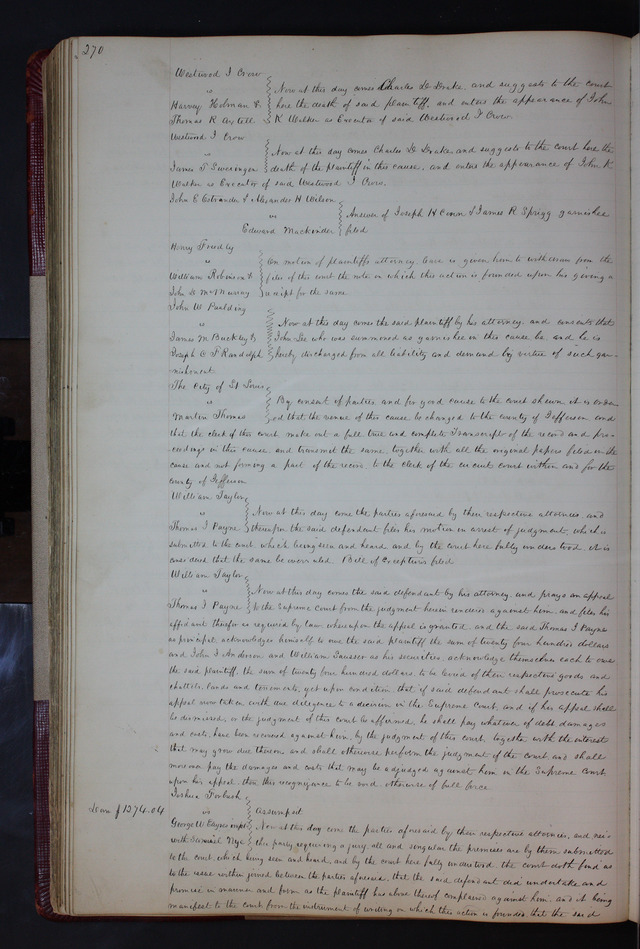 270
Westwood T Crow
vs
Harvey Holman &
Thomas R Axtell
Now at this day comes Charles D Drake, and suggests to the court
here the death of said plaintiff, and enters the appearance of John
K Walker as Executor of said Westwood T Crow.
Westwood T Crow
vs
James T Swearingen
Now at this day comes Charles D Drake and suggests to the court here the
death of the plaintiff in this cause, and enters the appearance of John K
Walker as Executor of said Westwood T Crow.
John E Ostrander & Alexander H Wilson
vs
Edward Mackinder
Answer of Joseph H Conn & James R Sprigg garnishee
filed
Henry Friedly
vs
William Robinson &
John G McMurray
On motion of plaintiffs attorney, leave is given him to withdraw from the
files of this court the note on which this action is founded upon his giving a
receipt for the same
John W Paulding
vs
James M Buckley &
Joseph C F Randolph
Now at this day comes the said plaintiff by his attorney, and consents that
John Lee who was summoned as garnishee in this cause be, and he is
hereby discharged from all liability and demand by virtue of such gar-
nishment.
The City of St Louis
vs
Martin Thomas
By consent of parties, and for good cause to the court shewn it is order
ed that the venue of this cause be changed to the county of Jefferson and
that the clerk of this court make out a full true and complete Transcript of the record and pro-
ceedings in this cause and transmit the same, together with all the original papers filed in the
cause and not forming a part of the record, to the clerk of the circuit court within and for the
county of Jefferson
William Taylor
vs
Thomas J Payne
Now at this day come the parties aforesaid by their respective attornies, and
thereupon the said defendant files his motion in arrest of judgment, which is
submitted to the court, which being seen and heard and by the court here fully understood, it is
considered that the same be overruled Bill of Exceptions filed
William Taylor
vs
Thomas J Payne
Now at this day comes the said defendant by his attorney, and prays an appeal
to the Supreme Court from the judgment herein rendered against him, and files his
affidavit therefor as required by law, whereupon the appeal is granted, and the said Thomas J Payne
as principal, acknowledges himself to owe the said plaintiff the sum of twenty four hundred dollars
and John J Anderson and William as his securities, acknowledge themselves each to owe
the said plaintiff, the sum of twenty four hundred dollars, to be levied of their respective goods and
chattels, lands and tenements, yet upon condition that if said defendant shall prosecute his
appeal now taken with due diligence to a decision in the Supreme Court, and if his appeal shall
be dismissed, or the judgment of this court be affirmed, he shall pay whatever of debt damages
and costs, have been recovered against him, by the judgment of this court, together with the interests
that may grow due thereon, and shall otherwise perform the judgment of the court, and shall
moreover pay the damages and costs that may be adjudged against him in the Supreme Court
upon his appeal then this recognizance to be void otherwise of full force
Joshua Forbush
vs
George W Capen
with Samuel Nye
Assumpsit
Now at this day come the parties aforesaid by their respective attornies, and nei-
ther party requiring a jury all and singular the premises are by them submitted
to the court, which being seen and heard, and by the court here fully understood, the court doth find as
to the issue within joined between the parties aforesaid, that the said defendant did undertake and
promise in manner and form as the plaintiff has above thereof complained against him, and it being
manifest to the court from the instrument of writing on which this action is founded, that the said
1274.04